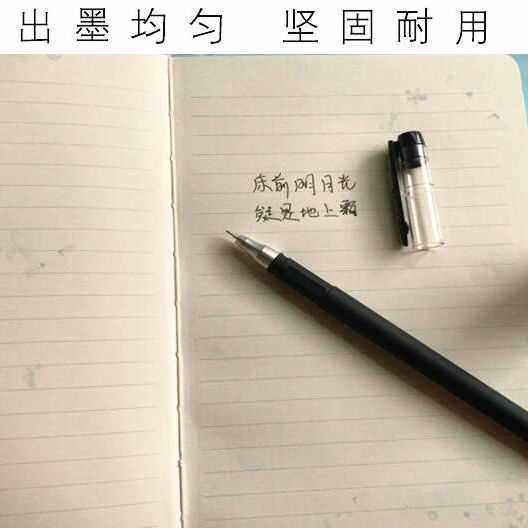 出墨均匀 坚固耐用
床前明月光
疑是地上